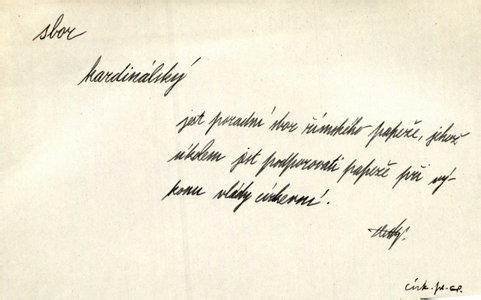 sbor
kardinálský
jest poradní sbor římského papeže, jehož
úkolem jest podporovati papeže při vý-
konu vlády církevní.